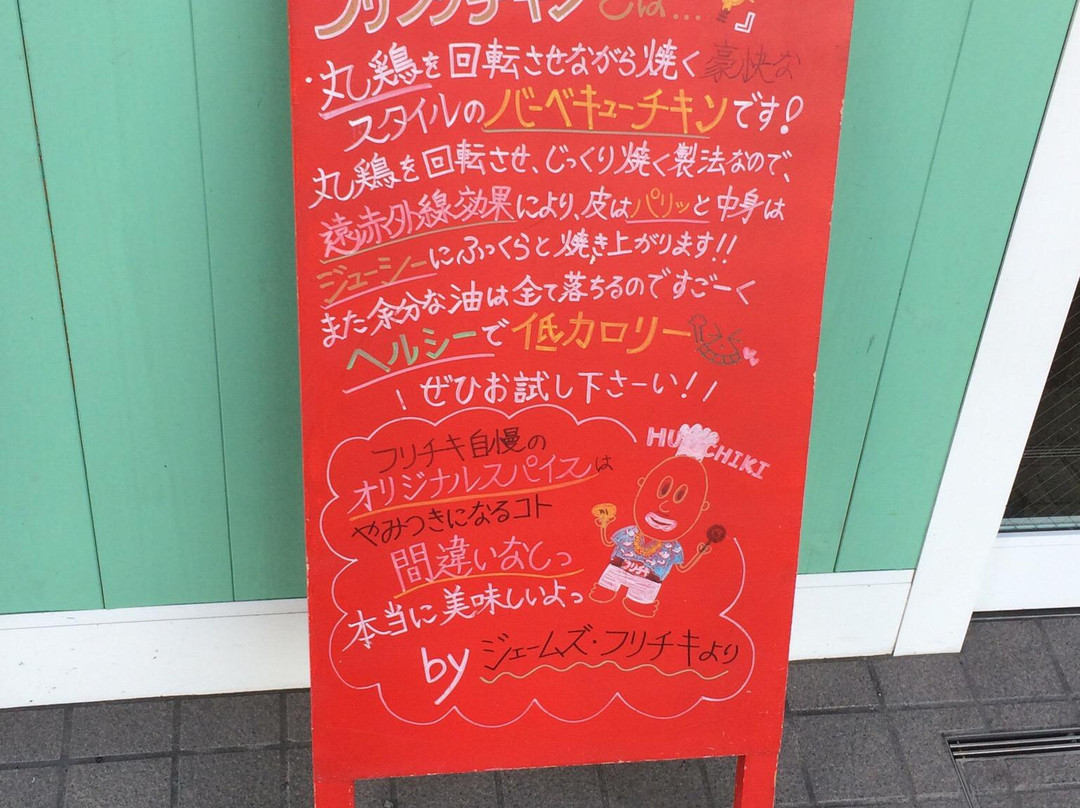 フリフリチキンとは…』
・丸鶏を回転させながら焼く豪快な
スタイルのバーベキューチキンです!
丸鶏を回転させ、じっくり焼く製法なので、
遠赤外線効果により、皮はパリッと中身は
ジューシーにふっくらと焼き上がります!!
また余分な油は全て落ちるのですごーく
ヘルシーで低カロリー
!ぜひお試し下さーい!!
フリチキ自慢の
オリジナルスパイスは
やみつきになるコト
間違いなしっ
本当に美味しいよっ
by ジェームズ・フリチキより
CHIKI
フリチキ